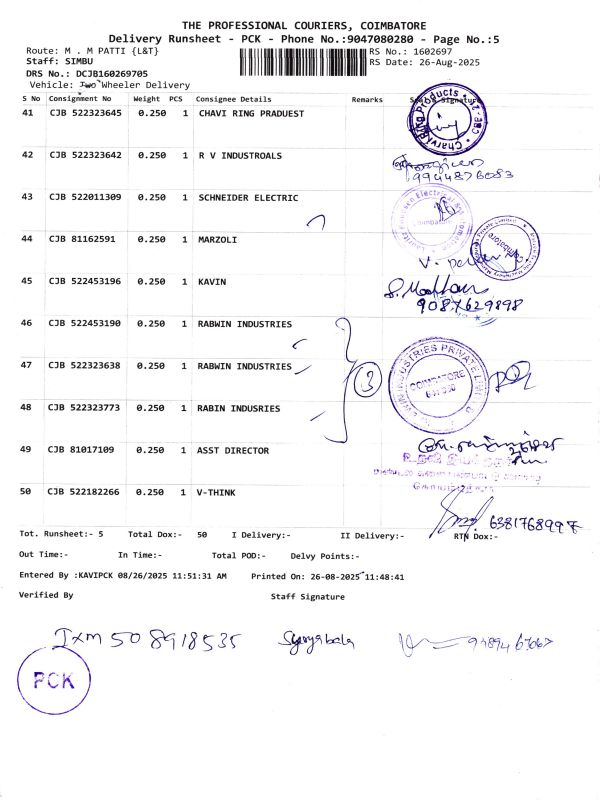 THE PROFESSIONAL COURIERS, COIMBATORE
Delivery Runsheet - PCK - Phone No.:9047080280 - Page No.:5
Route: M . M PATTI {L&T} RS No.: 1602697
Staff: SIMBU RS Date: 26-Aug-2025
DRS No.: DCJB160269705
Vehicle: Two Wheeler Delivery
S No Consignment No Weight PCS Consignee Details Remarks Signature
41 CJB 522323645 0.250 1 CHAVI RING PRADUEST
42 CJB 522323642 0.250 1 R V INDUSTROALS
9944876083
43 CJB 522011309 0.250 1 SCHNEIDER ELECTRIC
Coimbatore
44 CJB 81162591 0.250 1 MARZOLI
Coimbatore
45 CJB 522453196 0.250 1 KAVIN
9087629898
46 CJB 522453190 0.250 1 RABWIN INDUSTRIES
47 CJB 522323638 0.250 1 RABWIN INDUSTRIES
3
INDUSTRIES PRIVATE LIMITED
COIMBATORE
48 CJB 522323773 0.250 1 RABIN INDUSRIES
49 CJB 81017109 0.250 1 ASST DIRECTOR
50 CJB 522182266 0.250 1 V-THINK
6381768997
Tot. Runsheet:- 5 Total Dox:- 50 I Delivery:- II Delivery:- RTN Dox:-
Out Time:- In Time:- Total POD:- Delvy Points:-
Entered By :KAVIPCK 08/26/2025 11:51:31 AM Printed On: 26-08-2025 11:48:41
Verified By Staff Signature
Ixm 508918535
PCK